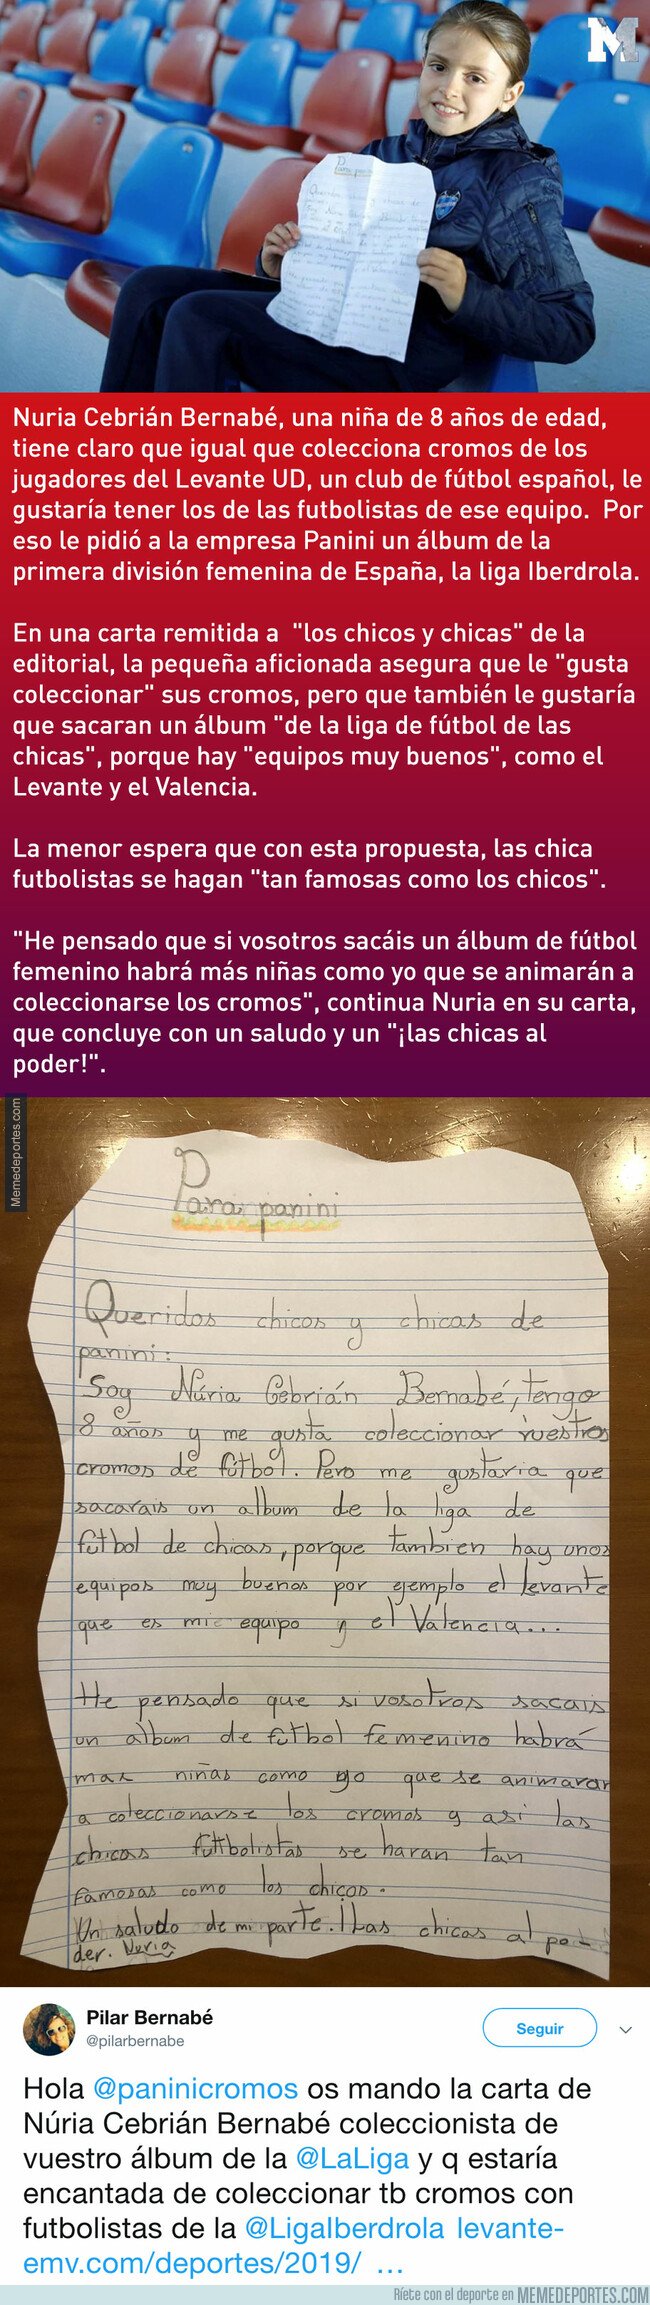 M
Nuria Cebrián Bernabé, una niña de 8 años de edad,
tiene claro que igual que colecciona cromos de los
jugadores del Levante UD, un club de fútbol español, le
gustaría tener los de las futbolistas de ese equipo.  Por
eso le pidió a la empresa Panini un álbum de la
primera división femenina de España, la liga Iberdrola.
En una carta remitida a  "los chicos y chicas" de la
editorial, la pequeña aficionada asegura que le "gusta
coleccionar" sus cromos, pero que también le gustaría
que sacaran un álbum "de la liga de fútbol de las
chicas", porque hay "equipos muy buenos", como el
Levante y el Valencia.
La menor espera que con esta propuesta, las chica
futbolistas se hagan "tan famosas como los chicos".
"He pensado que si vosotros sacáis un álbum de fútbol
femenino habrá más niñas como yo que se animarán a
coleccionarse los cromos", continua Nuria en su carta,
que concluye con un saludo y un "¡las chicas al
poder!".
Memedeportes.com
Para panini
Queridos chicos y chicas de
panini:
Soy Núria Cebrián Bernabé, tengo
8 años y me gusta coleccionar vuestros
cromos de fútbol. Pero me gustaria que
sacarais un album de la liga de
futbol de chicas, porque tambien hay unos
equipos muy buenos por ejemplo el levante
que es mi equipo y el Valencia...
He pensado que si vosotros sacais
un album de futbol femenino habrá
mas niñas como yo que se animaran
a coleccionarse los cromos y asi las
chicas futbolistas se haran tan
famosas como los chicos.
Un saludo de mi parte. ¡Las chicas al po-
der. Nuria
Pilar Bernabé
@pilarbernabe
Seguir
Hola @paninicromos os mando la carta de
Núria Cebrián Bernabé coleccionista de
vuestro álbum de la @LaLiga y q estaría
encantada de coleccionar tb cromos con
futbolistas de la @LigaIberdrola levante-
emv.com/deportes/2019/ …
Ríete con el deporte en MEMEDEPORTES.COM